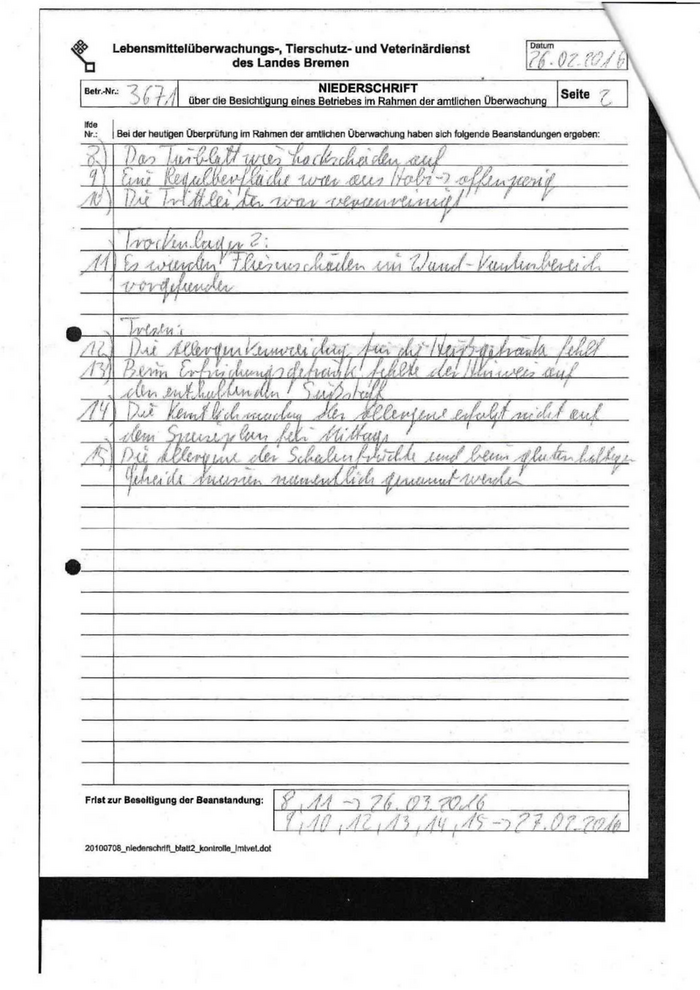 Lebensmittelüberwachungs-, Tierschutz- und Veterinärdienst
des Landes Bremen
Datum
26.02.2016
Betr.-Nr.: 3671
NIEDERSCHRIFT
über die Besichtigung eines Betriebes im Rahmen der amtlichen Überwachung
Seite 2
lfde
Nr.:
Bei der heutigen Überprüfung im Rahmen der amtlichen Überwachung haben sich folgende Beanstandungen ergeben:
8) Das Türblatt wies Lackschäden auf
9) Eine Regaloberfläche war aus Holz -> offenporig
10) Die Trittleiter war verunreinigt
Trockenlager 2:
11) Es wurden Fliesenschäden im Wand-Kantenbereich
vorgefunden
Tresen:
12) Die Allergenkennzeichnung für die Heißgetränke fehlt
13) Beim Erfrischungsgetränk fehlte der Hinweis auf
den enthaltenden Süßstoff
14) Die Kenntlichmachung der Allergene erfolgt nicht auf
dem Speiseplan bei Mittags
15) Die Allergene der Schalenfrüchte und beim glutenhaltigen
Getreide müssen namentlich genannt werden
Frist zur Beseitigung der Beanstandung:
8, 11 -> 26.03.2016
9, 10, 12, 13, 14, 15 -> 27.02.2016
20100708_niederschrift_blatt2_kontrolle_lmtvet.dot